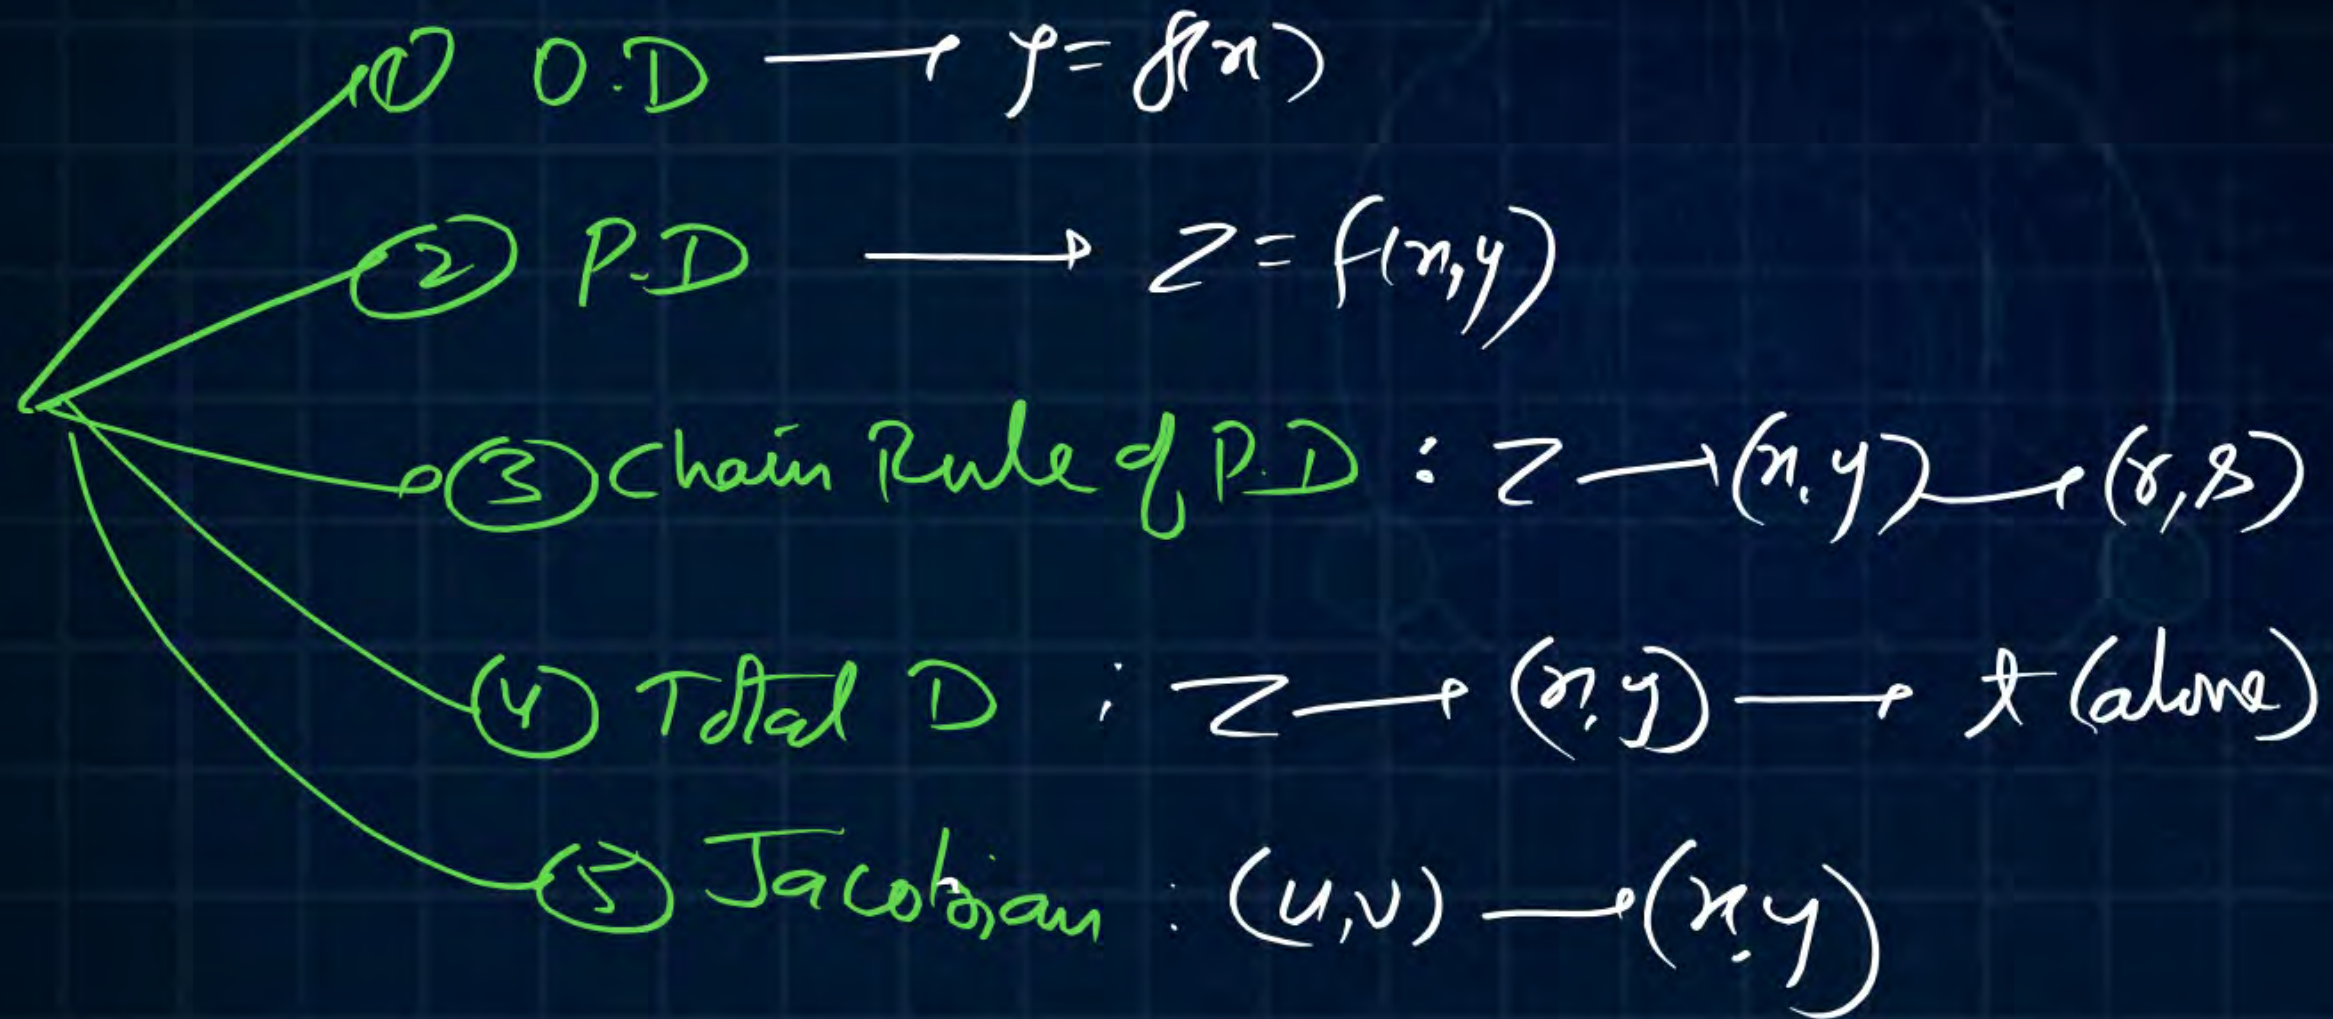 ① O.D → y = f(x)
② P.D → Z = f(x,y)
③ Chain Rule of P.D : Z → (x,y) → (r,s)
④ Total D : Z → (x,y) → t (alone)
⑤ Jacobian : (u,v) → (x,y)